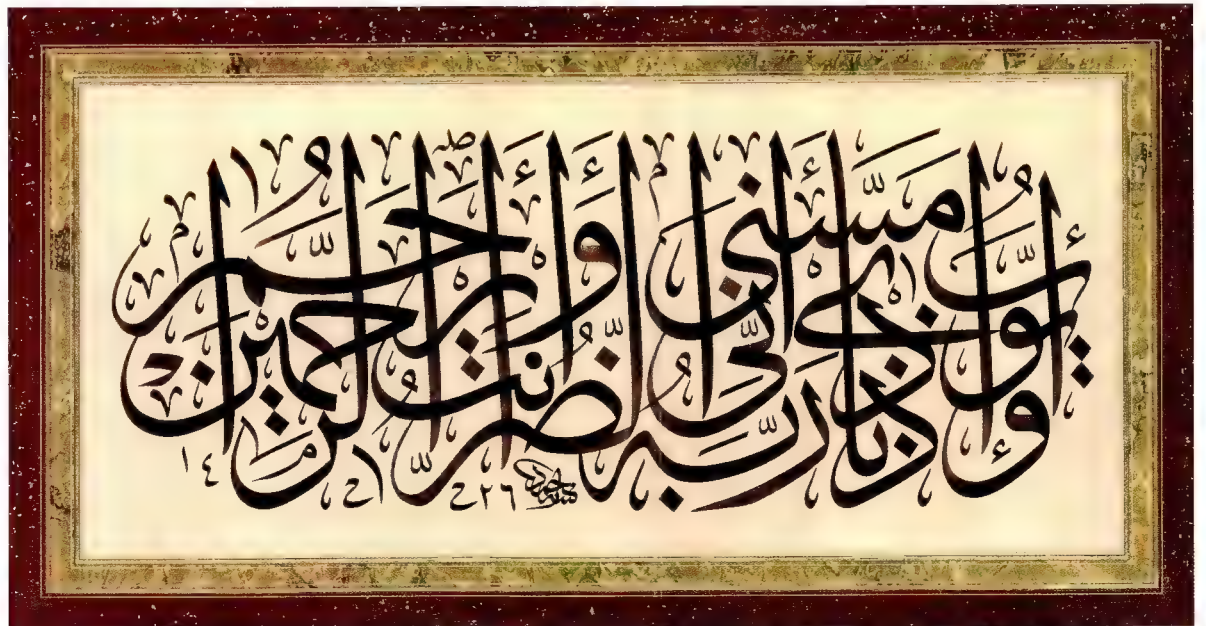 وَأَيُّوبَ إِذْ نَادَىٰ رَبَّهُ أَنِّي مَسَّنِيَ الضُّرُّ وَأَنْتَ أَرْحَمُ الرَّاحِمِينَ
١٤٢٦